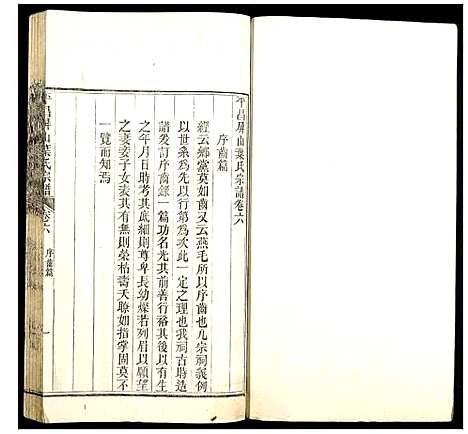 平昌屏山葉氏宗譜卷六
序齒篇
經云鄉黨莫如齒又云燕毛所以序齒也凡宗祠義例
以世系為先以行第為次此一定之理也我祠古時造
譜爰訂序齒錄一篇功名光其前善行裕其後以有生
之年月日時考其底細則尊卑長幼燦若列眉以願望
之妻妾子女表其有無則榮枯壽夭瞭如指掌固莫不
一覽而知焉
平昌屏山葉氏宗譜
卷六
序齒篇
一